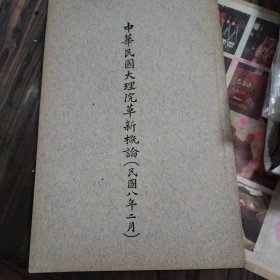 中華民國大理院革新概論(民國八年二月)